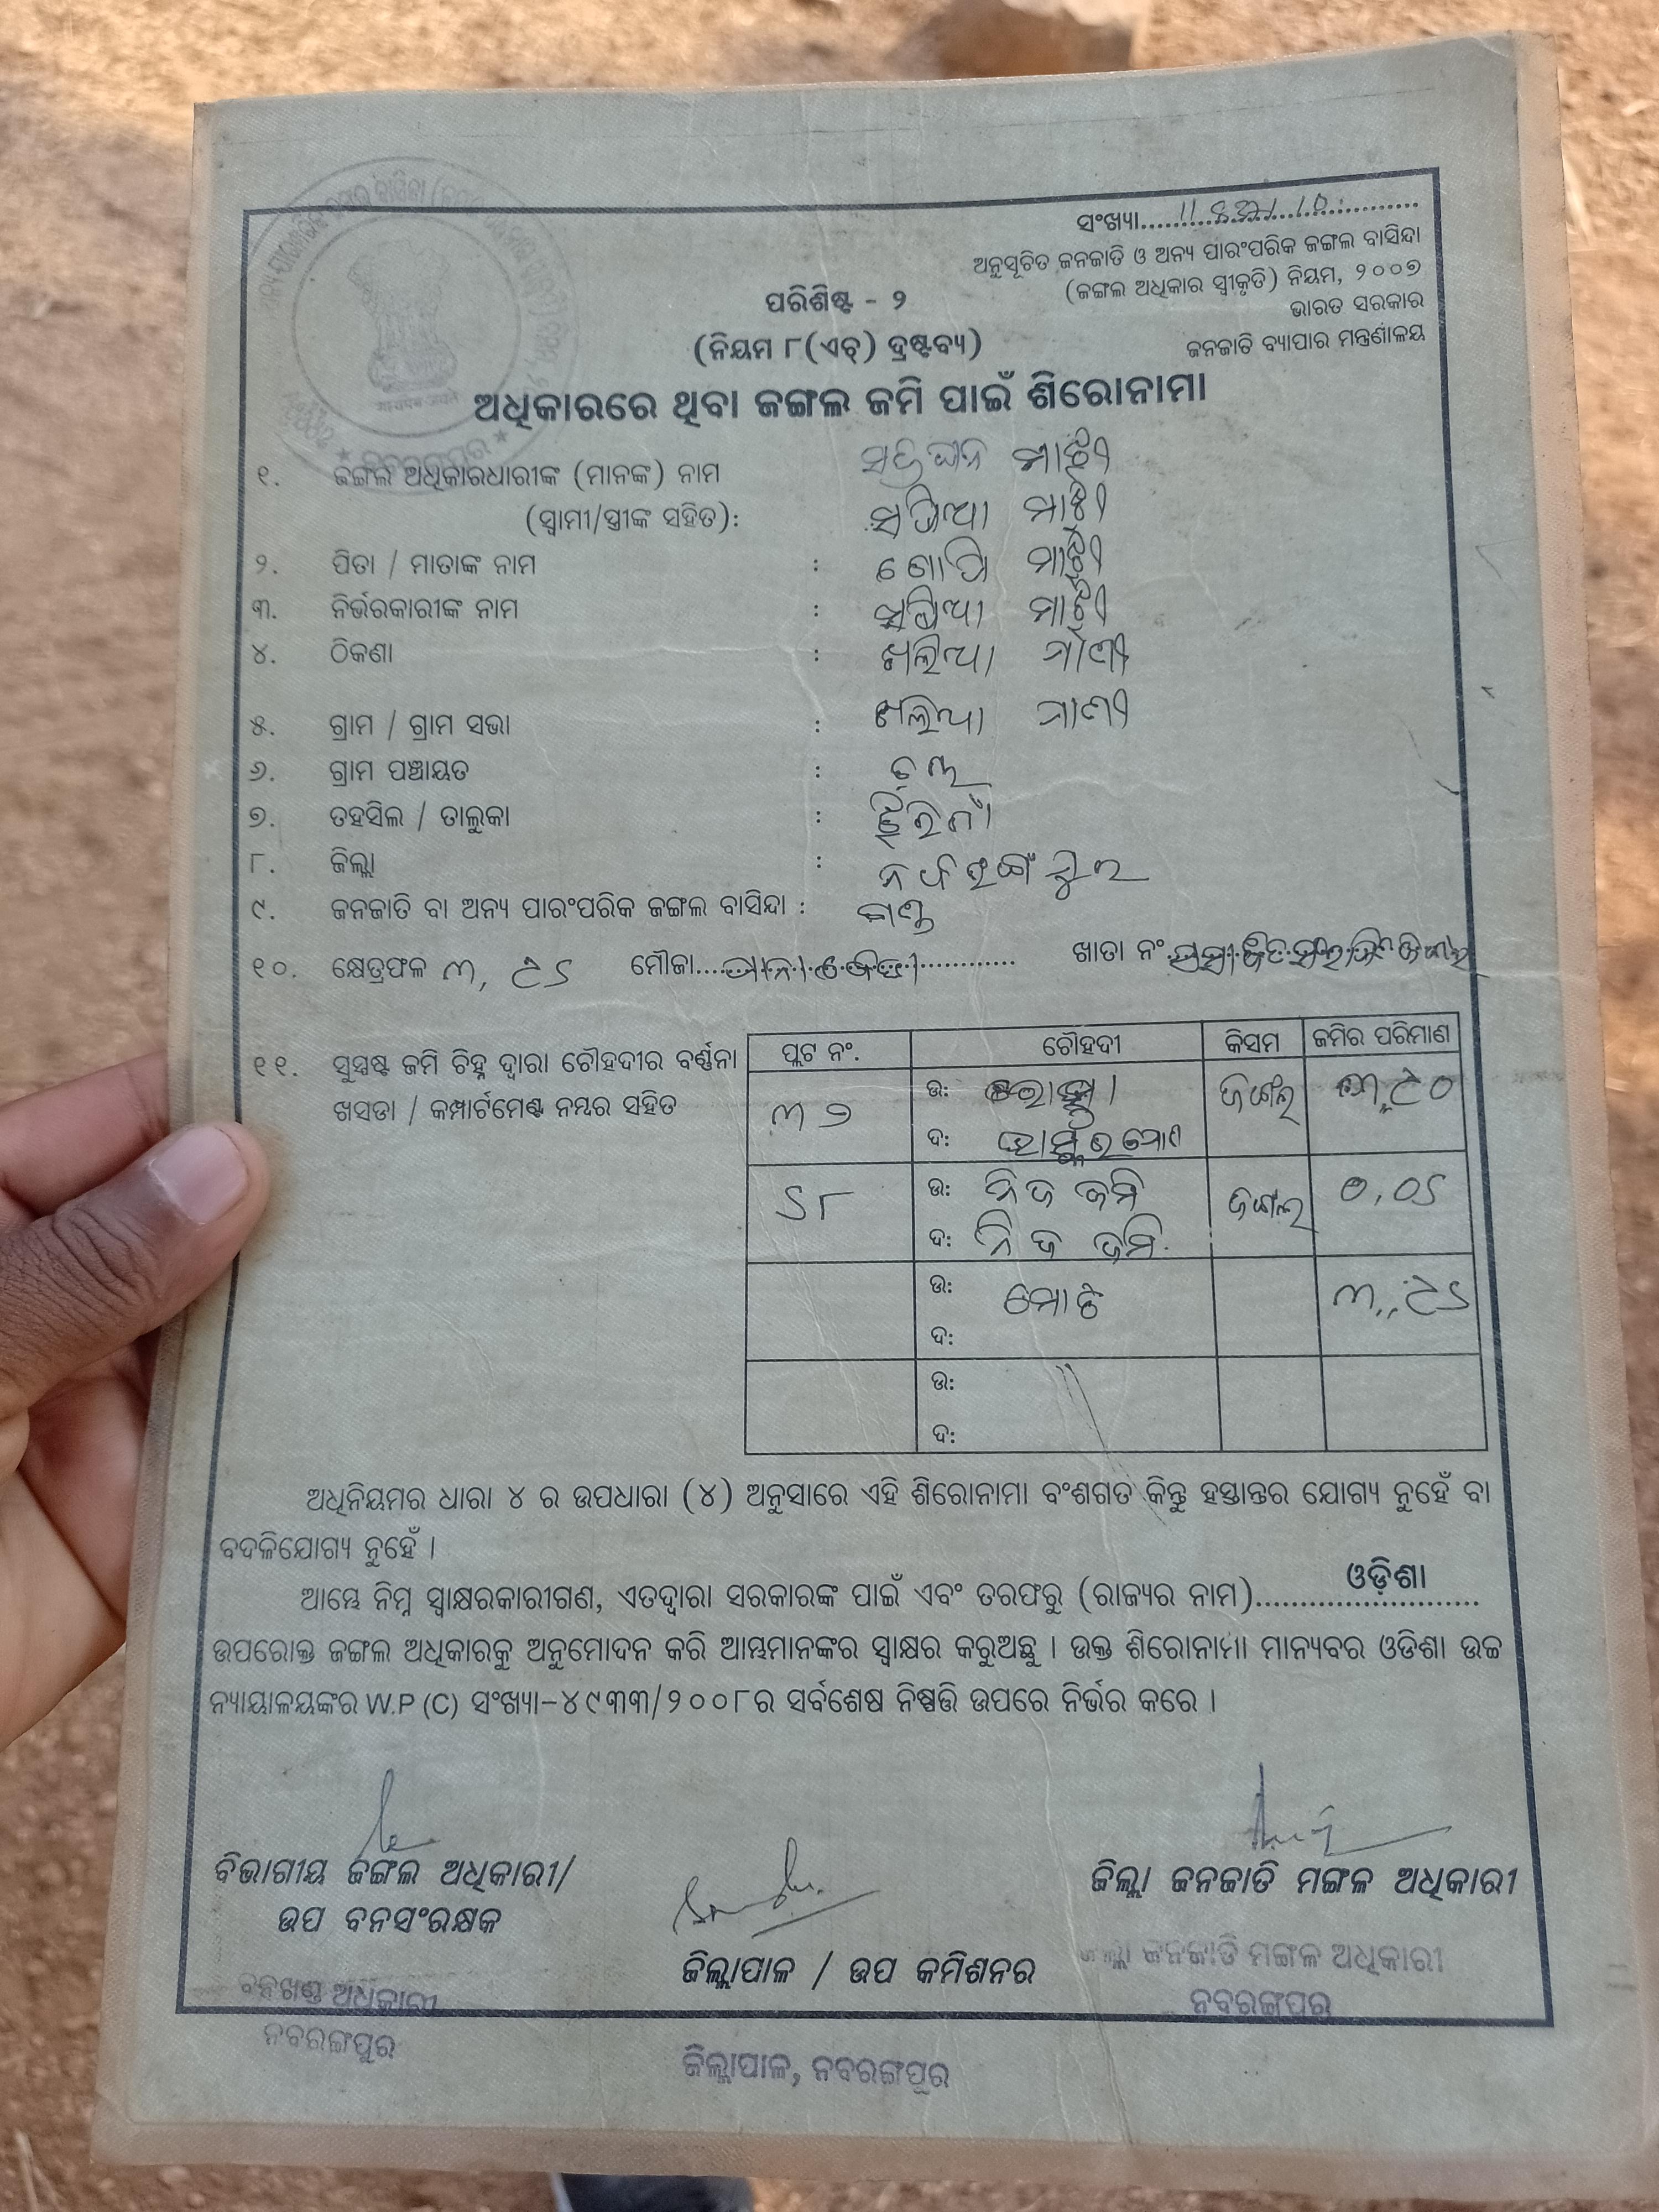 ସଂଖ୍ୟା
ଅନୁସୂଚିତ ଜନଜାତି ଓ ଅନ୍ୟ ପାରଂପରିକ ଜଙ୍ଗଲ ବାସିନ୍ଦା
(ଜଙ୍ଗଲ ଅଧିକାର ସ୍ୱୀକୃତି) ନିୟମ, ୨୦୦୭
ଭାରତ ସରକାର
ଜନଜାତି ବ୍ୟାପାର ମନ୍ତ୍ରଣାଳୟ
ପରିଶିଷ୍ଟ - ୨
(ନିୟମ ୮(ଏଚ୍) ଦ୍ରଷ୍ଟବ୍ୟ)
ଅଧିକାରରେ ଥିବା ଜଙ୍ଗଲ ଜମି ପାଇଁ ଶିରୋନାମା
୧. ଜଙ୍ଗଲ ଅଧିକାରଧାରୀଙ୍କ (ମାନଙ୍କ) ନାମ ମାଝୀ
(ସ୍ୱାମୀ/ସ୍ତ୍ରୀଙ୍କ ସହିତ): ମାଝୀ
୨. ପିତା / ମାତାଙ୍କ ନାମ : ଗୋପି ମାଝୀ
୩. ନିର୍ଭରକାରୀଙ୍କ ନାମ : ମାଝୀ
୪. ଠିକଣା : ଖଲିଆ
୫. ଗ୍ରାମ / ଗ୍ରାମ ସଭା : ଖଲିଆ
୬. ଗ୍ରାମ ପଞ୍ଚାୟତ :
୭. ତହସିଲ / ତାଲୁକା : ଝରିଗାଁ
୮. ଜିଲ୍ଲା : ନବରଙ୍ଗପୁର
୯. ଜନଜାତି ବା ଅନ୍ୟ ପାରଂପରିକ ଜଙ୍ଗଲ ବାସିନ୍ଦା : ଗଣ୍ଡ
୧୦. କ୍ଷେତ୍ରଫଳ ୩, ୯୫ ମୌଜା ଖାତା ନଂ.
୧୧. ସୁସ୍ପଷ୍ଟ ଜମି ଚିହ୍ନ ଦ୍ୱାରା ଚୌହଦୀର ବର୍ଣ୍ଣନା
ଖସଡା / କମ୍ପାର୍ଟମେଣ୍ଟ ନମ୍ବର ସହିତ
ପ୍ଲଟ ନଂ. ଚୌହଦୀ କିସମ ଜମିର ପରିମାଣ
୩୨ ଉ: ଜଙ୍ଗଲ ୩,୯୦
ଦ:
୫୮ ଉ: ନିଜ ଜମି ଜଙ୍ଗଲ ୦,୦୫
ଦ: ନିଜ ଜମି
ଉ: ମୋଟ ୩,୯୫
ଦ:
ଉ:
ଦ:
ଅଧିନିୟମର ଧାରା ୪ ର ଉପଧାରା (୪) ଅନୁସାରେ ଏହି ଶିରୋନାମା ବଂଶଗତ କିନ୍ତୁ ହସ୍ତାନ୍ତର ଯୋଗ୍ୟ ନୁହେଁ ବା
ବଦଳିଯୋଗ୍ୟ ନୁହେଁ ।
ଆମ୍ଭେ ନିମ୍ନ ସ୍ୱାକ୍ଷରକାରୀଗଣ, ଏତଦ୍ୱାରା ସରକାରଙ୍କ ପାଇଁ ଏବଂ ତରଫରୁ (ରାଜ୍ୟର ନାମ) ଓଡ଼ିଶା
ଉପରୋକ୍ତ ଜଙ୍ଗଲ ଅଧିକାରକୁ ଅନୁମୋଦନ କରି ଆମ୍ଭମାନଙ୍କର ସ୍ୱାକ୍ଷର କରୁଅଛୁ । ଉକ୍ତ ଶିରୋନାମା ମାନ୍ୟବର ଓଡିଶା ଉଚ୍ଚ
ନ୍ୟାୟାଳୟଙ୍କର W.P (C) ସଂଖ୍ୟା-୪୯୩୩/୨୦୦୮ର ସର୍ବଶେଷ ନିଷ୍ପତ୍ତି ଉପରେ ନିର୍ଭର କରେ ।
ବିଭାଗୀୟ ଜଙ୍ଗଲ ଅଧିକାରୀ/
ଉପ ବନସଂରକ୍ଷକ
ଜିଲ୍ଲାପାଳ / ଉପ କମିଶନର
ଜିଲ୍ଲା ଜନଜାତି ମଙ୍ଗଳ ଅଧିକାରୀ
ଜିଲ୍ଲା ଜନଜାତି ମଙ୍ଗଳ ଅଧିକାରୀ
ନବରଙ୍ଗପୁର
ବନଖଣ୍ଡ ଅଧିକାରୀ
ନବରଙ୍ଗପୁର
ଜିଲ୍ଲାପାଳ, ନବରଙ୍ଗପୁର